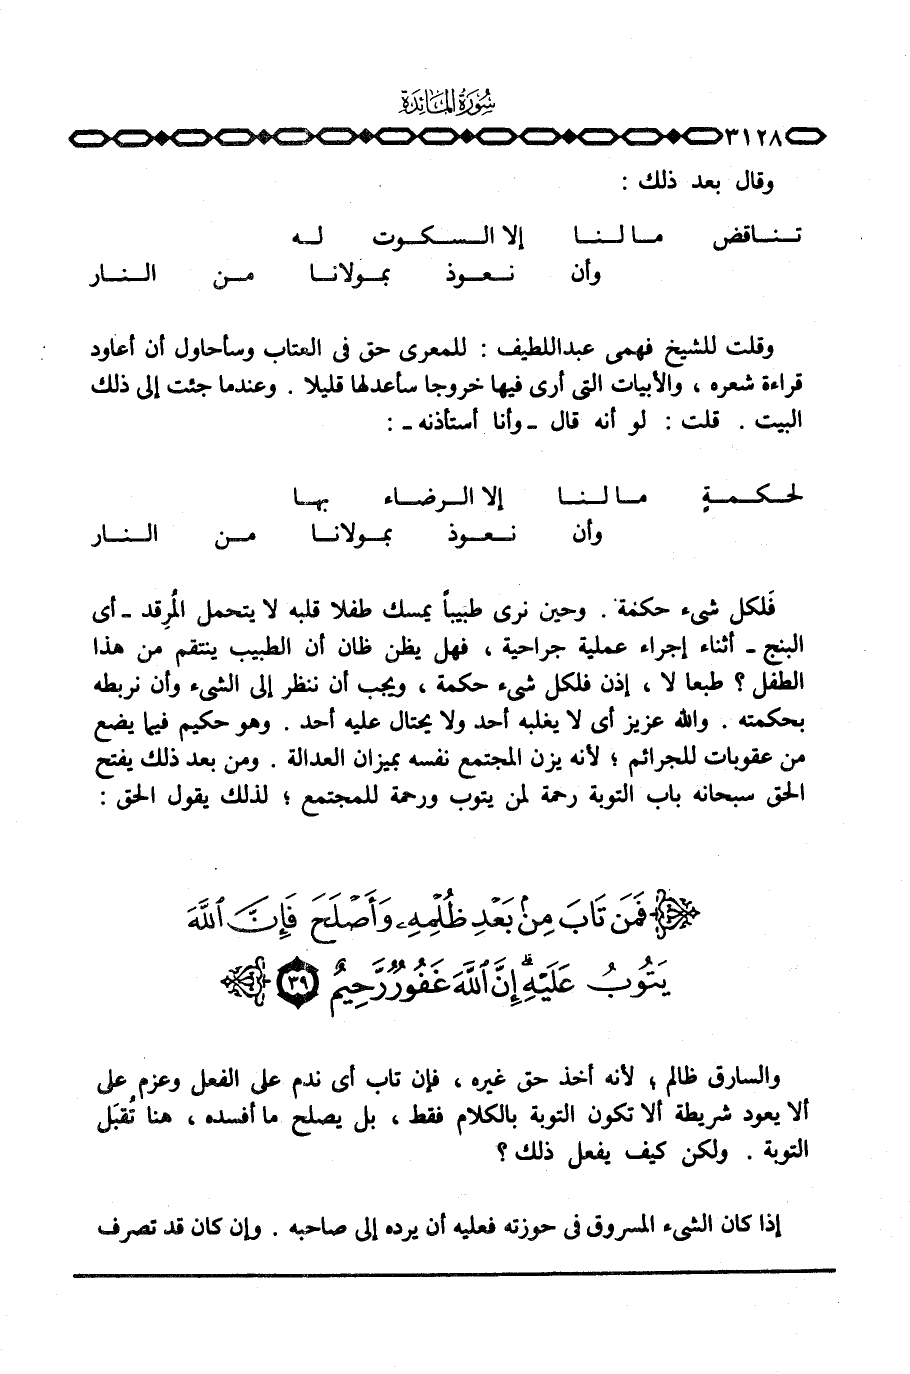 سُورَةُ المَائِدَة
٣١٢٨
وقال بعد ذلك :
تـنـاقض مـا لـنـا إلا الـسـكـوت لـه
وأن نـعـوذ بمـولانـا مـن النـار
وقلت للشيخ فهمى عبداللطيف : للمعرى حق فى العتاب وسأحاول أن أعاود
قراءة شعره ، والأبيات التى أرى فيها خروجا سأعدلها قليلا . وعندما جئت إلى ذلك
البيت . قلت : لو أنه قال ـ وأنا أستأذنه ـ :
لحـكـمـةٍ مـا لـنـا إلا الـرضـاء بهـا
وأن نـعـوذ بمـولانـا مـن النـار
فَلكل شىء حكمة . وحين نرى طبيباً يمسك طفلا قلبه لا يتحمل المُرِقد ـ أى
البنج ـ أثناء إجراء عملية جراحية ، فهل يظن ظان أن الطبيب ينتقم من هذا
الطفل ؟ طبعا لا ، إذن فلكل شىء حكمة ، ويجب أن ننظر إلى الشىء وأن نربطه
بحكمته . والله عزيز أى لا يغلبه أحد ولا يحتال عليه أحد . وهو حكيم فيما يضع
من عقوبات للجرائم ؛ لأنه يزن المجتمع نفسه بميزان العدالة . ومن بعد ذلك يفتح
الحق سبحانه باب التوبة رحمة لمن يتوب ورحمة للمجتمع ؛ لذلك يقول الحق :
﴿ فَمَن تَابَ مِنۢ بَعۡدِ ظُلۡمِهِۦ وَأَصۡلَحَ فَإِنَّ ٱللَّهَ
يَتُوبُ عَلَيۡهِۗ إِنَّ ٱللَّهَ غَفُورٞ رَّحِيمٌ ٣٩ ﴾
والسارق ظالم ؛ لأنه أخذ حق غيره ، فإن تاب أى ندم على الفعل وعزم على
ألا يعود شريطة ألا تكون التوبة بالكلام فقط ، بل يصلح ما أفسده ، هنا تُقبَل
التوبة . ولكن كيف يفعل ذلك ؟
إذا كان الشىء المسروق فى حوزته فعليه أن يرده إلى صاحبه . وإن كان قد تصرف